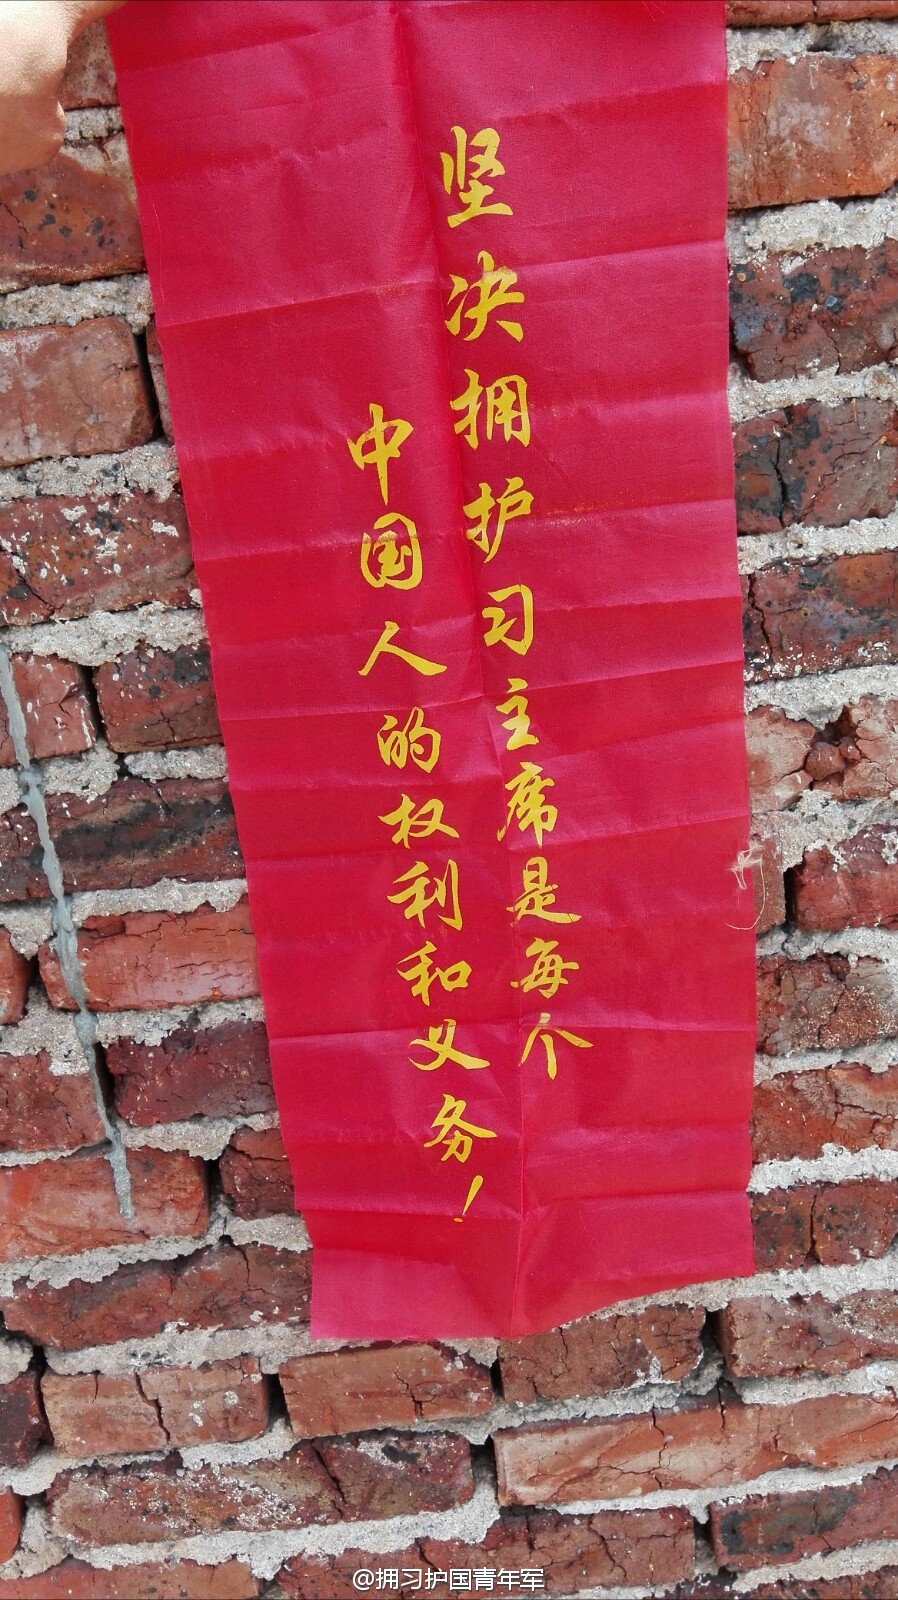 坚决拥护习主席是每个
中国人的权利和义务！
@拥习护国青年军